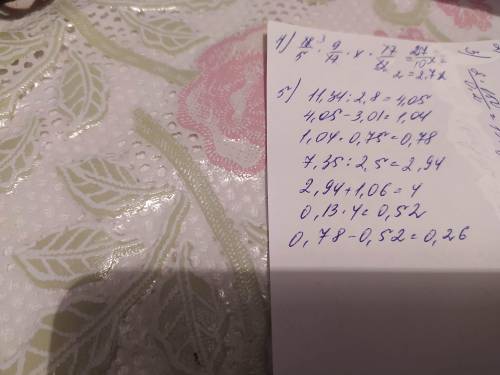 4) 18/5 · 9/17 · x · 17/12 = 27/10 x =
= 2,7x
5)
11,34 : 2,8 = 4,05
4,05 - 3,01 = 1,04
1,04 · 0,75 = 0,78
7,35 : 2,5 = 2,94
2,94 + 1,06 = 4
0,13 · 4 = 0,52
0,78 - 0,52 = 0,26